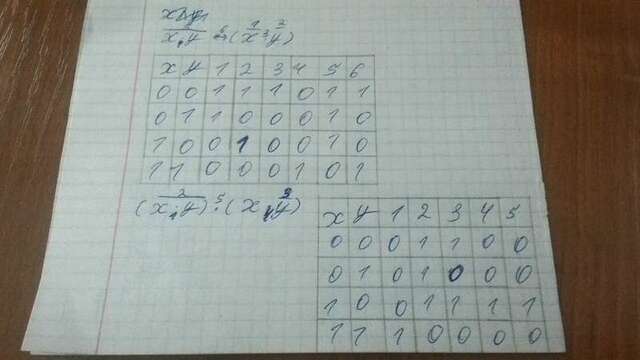 x y 1 2 3 4 5 6
0 0 1 1 1 0 1 1
0 1 1 0 0 0 1 0
1 0 0 1 0 0 1 0
1 1 0 0 0 1 0 1
x y 1 2 3 4 5
0 0 0 1 1 0 0
0 1 0 1 0 0 0
1 0 0 1 1 1 1
1 1 1 0 0 0 0